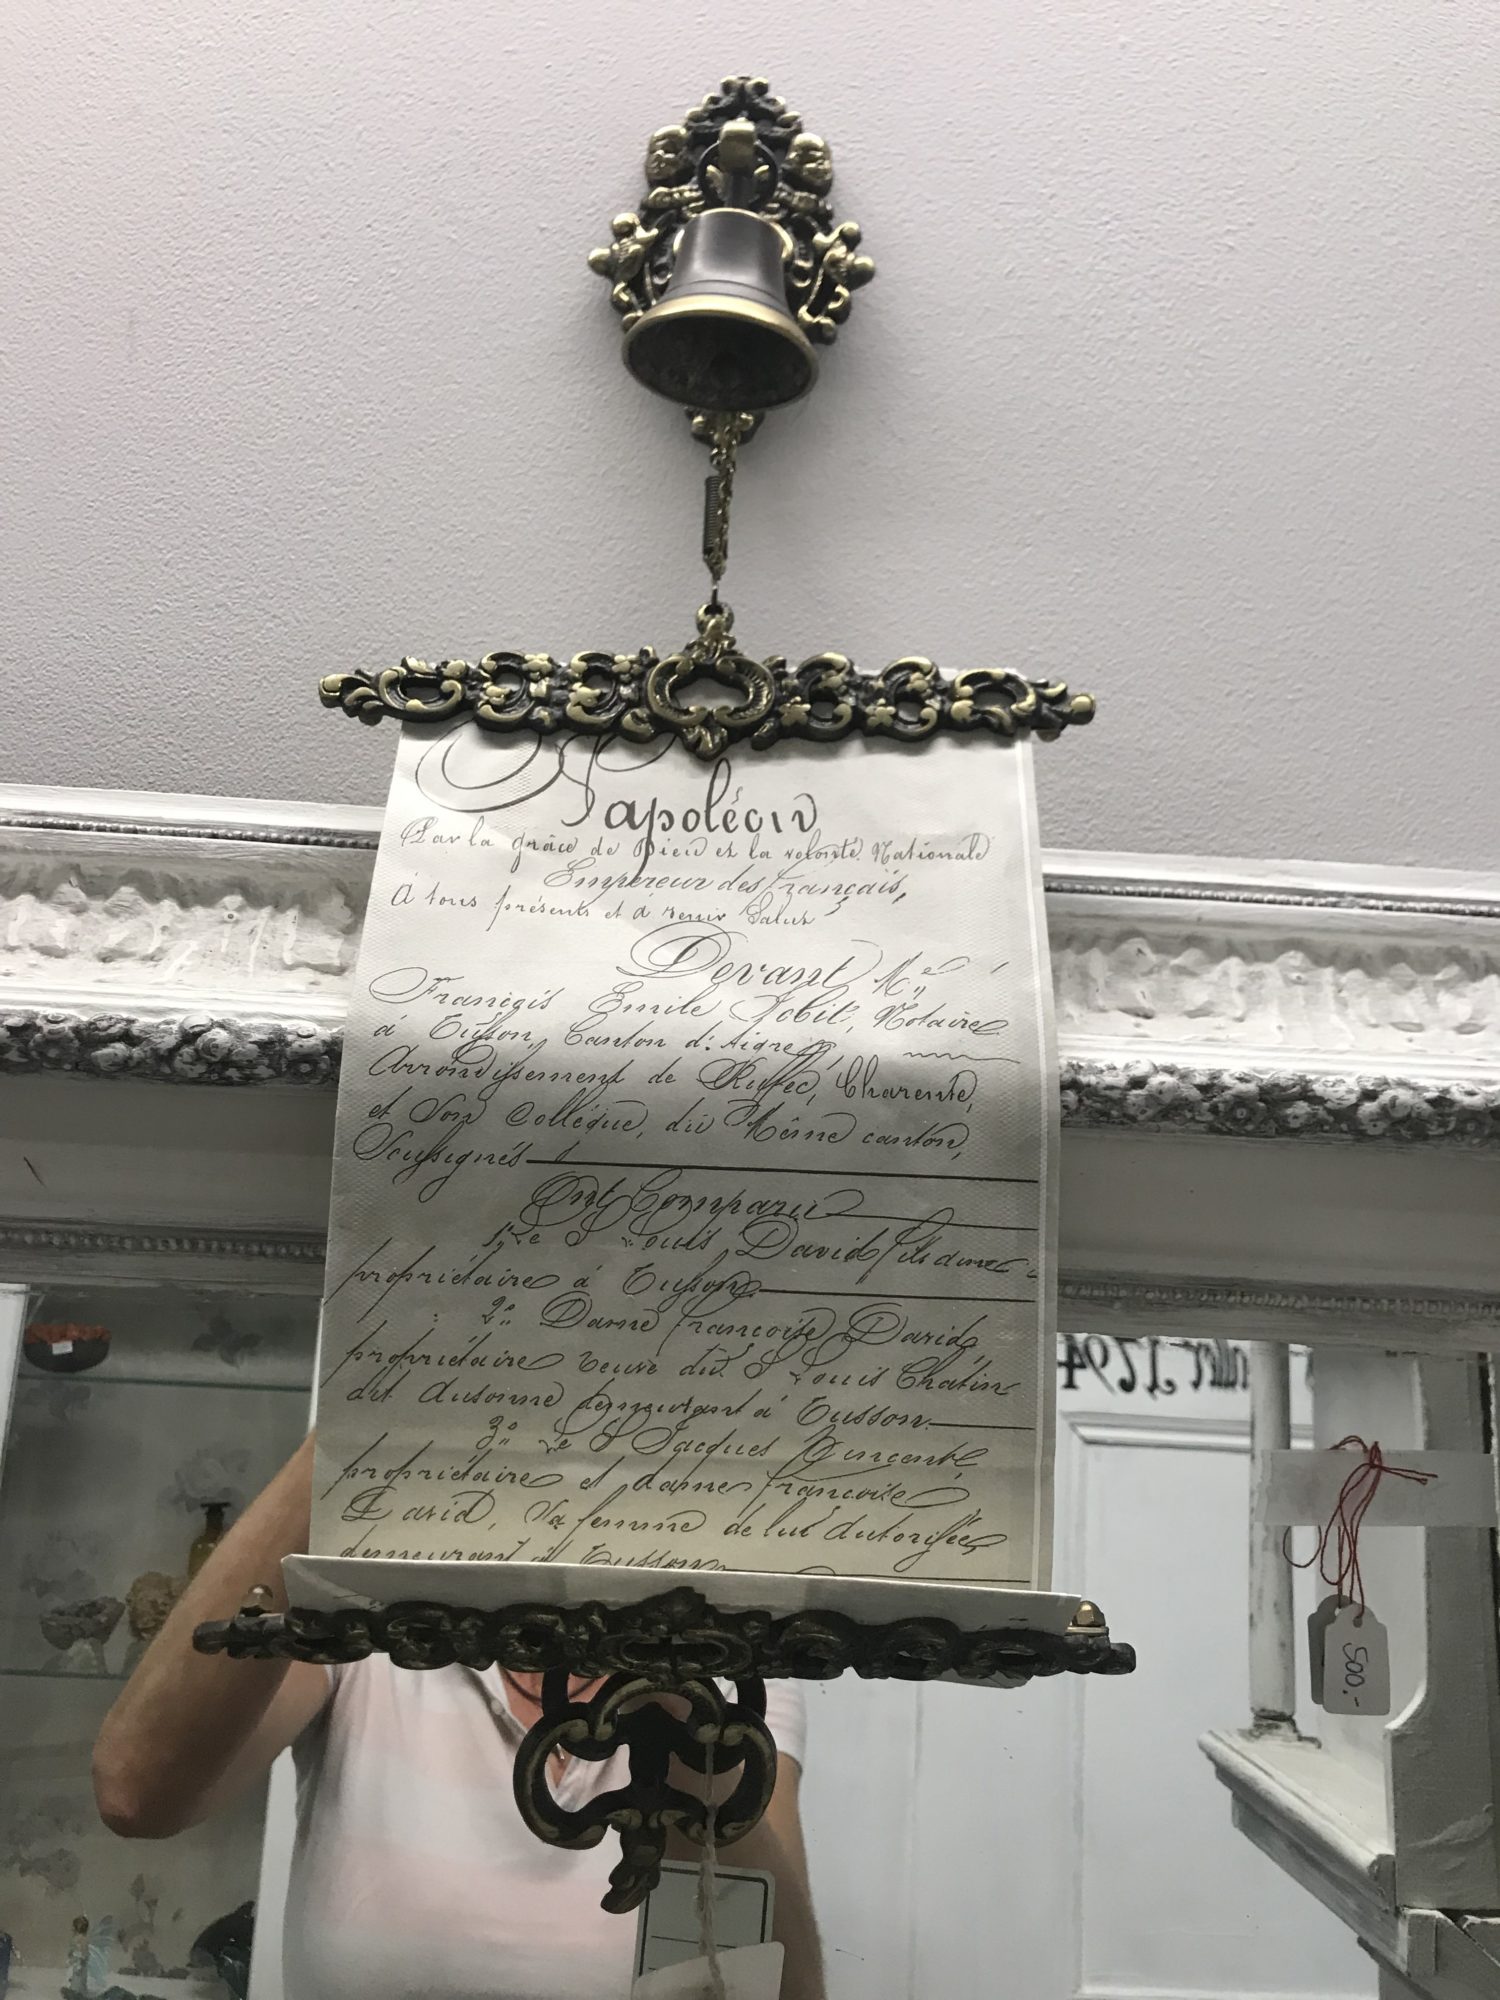 Napoléon
Par la grâce de Dieu et la volonté Nationale
Empereur des Français,
A tous présents et à venir Salut
Devant Me
François Emile Jobit, Notaire
à Tusson, Canton d'Aigre,
Arrondissement de Ruffec, Charente,
et Son Collègue, du Même canton,
Soussignés
Ont Comparu
1° Le S Louis David fils aîné
propriétaire à Tusson
2° Dame françoise David,
propriétaire veuve du S Louis Chatin
dit Ausonne demeurant à Tusson
3° Le S Jacques
propriétaire et dame françoise
David, Sa femme de lui Autorisée,
demeurant à Tusson
1794
500.-